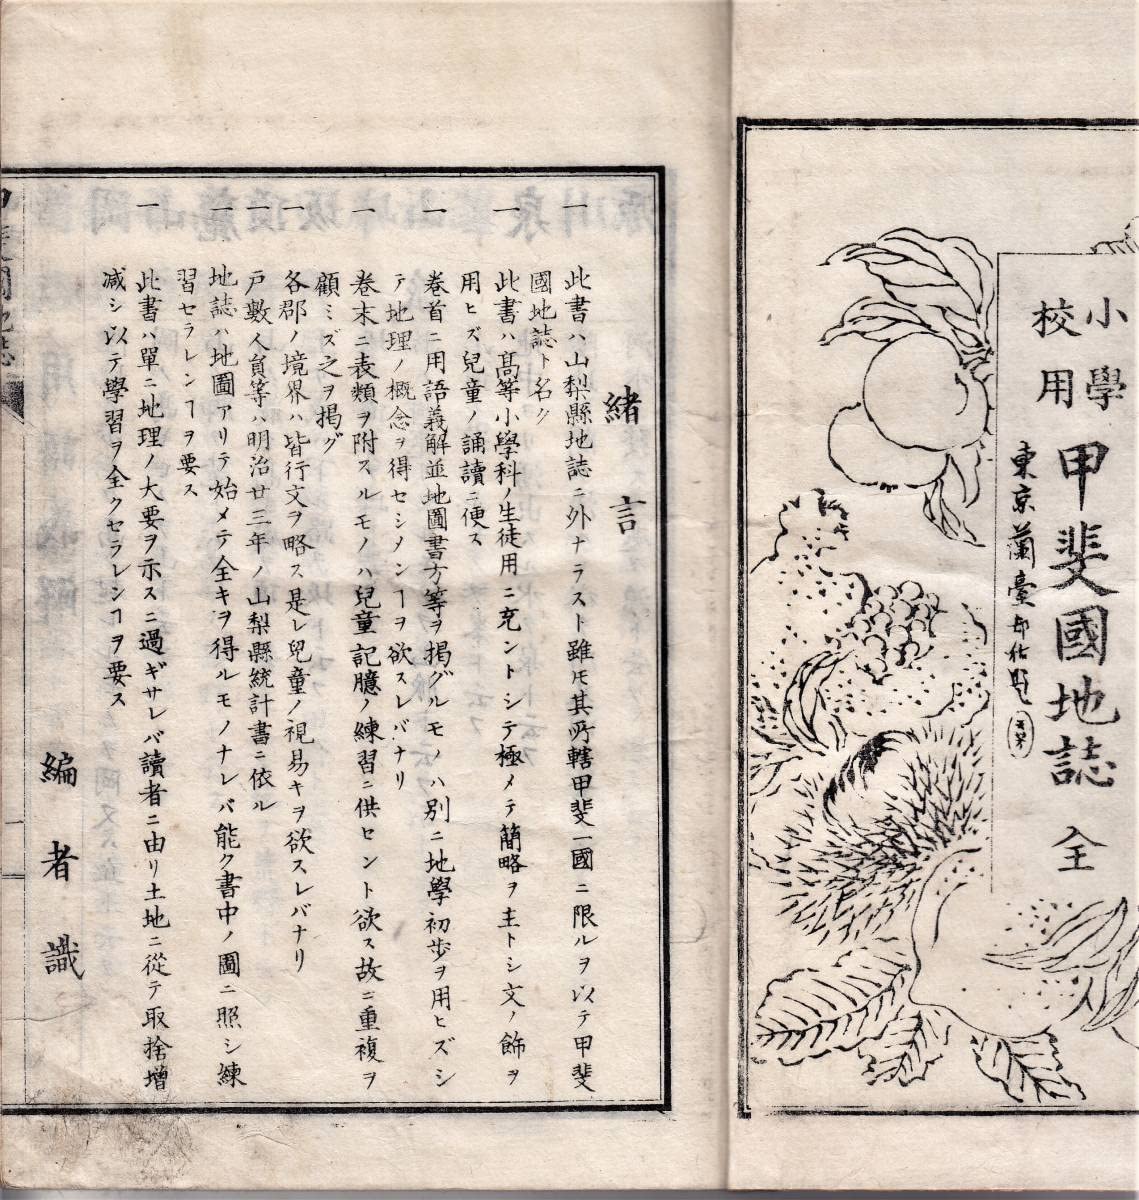 小學
校用
甲斐國地誌 全
東京蘭臺
緒言
一 此書ハ山梨縣地誌ニ外ナラスト雖𪜈其所轄甲斐一國ニ限ルヲ以テ甲斐
國地誌ト名ク
一 此書ハ髙等小學科ノ生徒用ニ充ントシテ極メテ簡略ヲ主トシ文ノ飾ヲ
用ヒズ兒童ノ誦讀ニ便ス
一 卷首ニ用語義解並地圖書方等ヲ掲グルモノハ別ニ地學初歩ヲ用ヒズシ
テ地理ノ概念ヲ得セシメンヿヲ欲スレバナリ
一 卷末ニ表類ヲ附スルモノハ兒童記臆ノ練習ニ供セント欲ス故ニ重複ヲ
顧ミズ之ヲ掲グ
一 各郡ノ境界ハ皆行文ヲ略ス是レ兒童ノ視易キヲ欲スレバナリ
一 戸數人員等ハ明治廿三年ノ山梨縣統計書ニ依ル
一 地誌ハ地圖アリテ始メテ全キヲ得ルモノナレバ能ク書中ノ圖ニ照シ練
習セラレンヿヲ要ス
一 此書ハ單ニ地理ノ大要ヲ示スニ過ギサレバ讀者ニ由リ土地ニ從テ取捨增
减シ以テ學習ヲ全クセラレンヿヲ要ス
編者識
甲斐國地誌